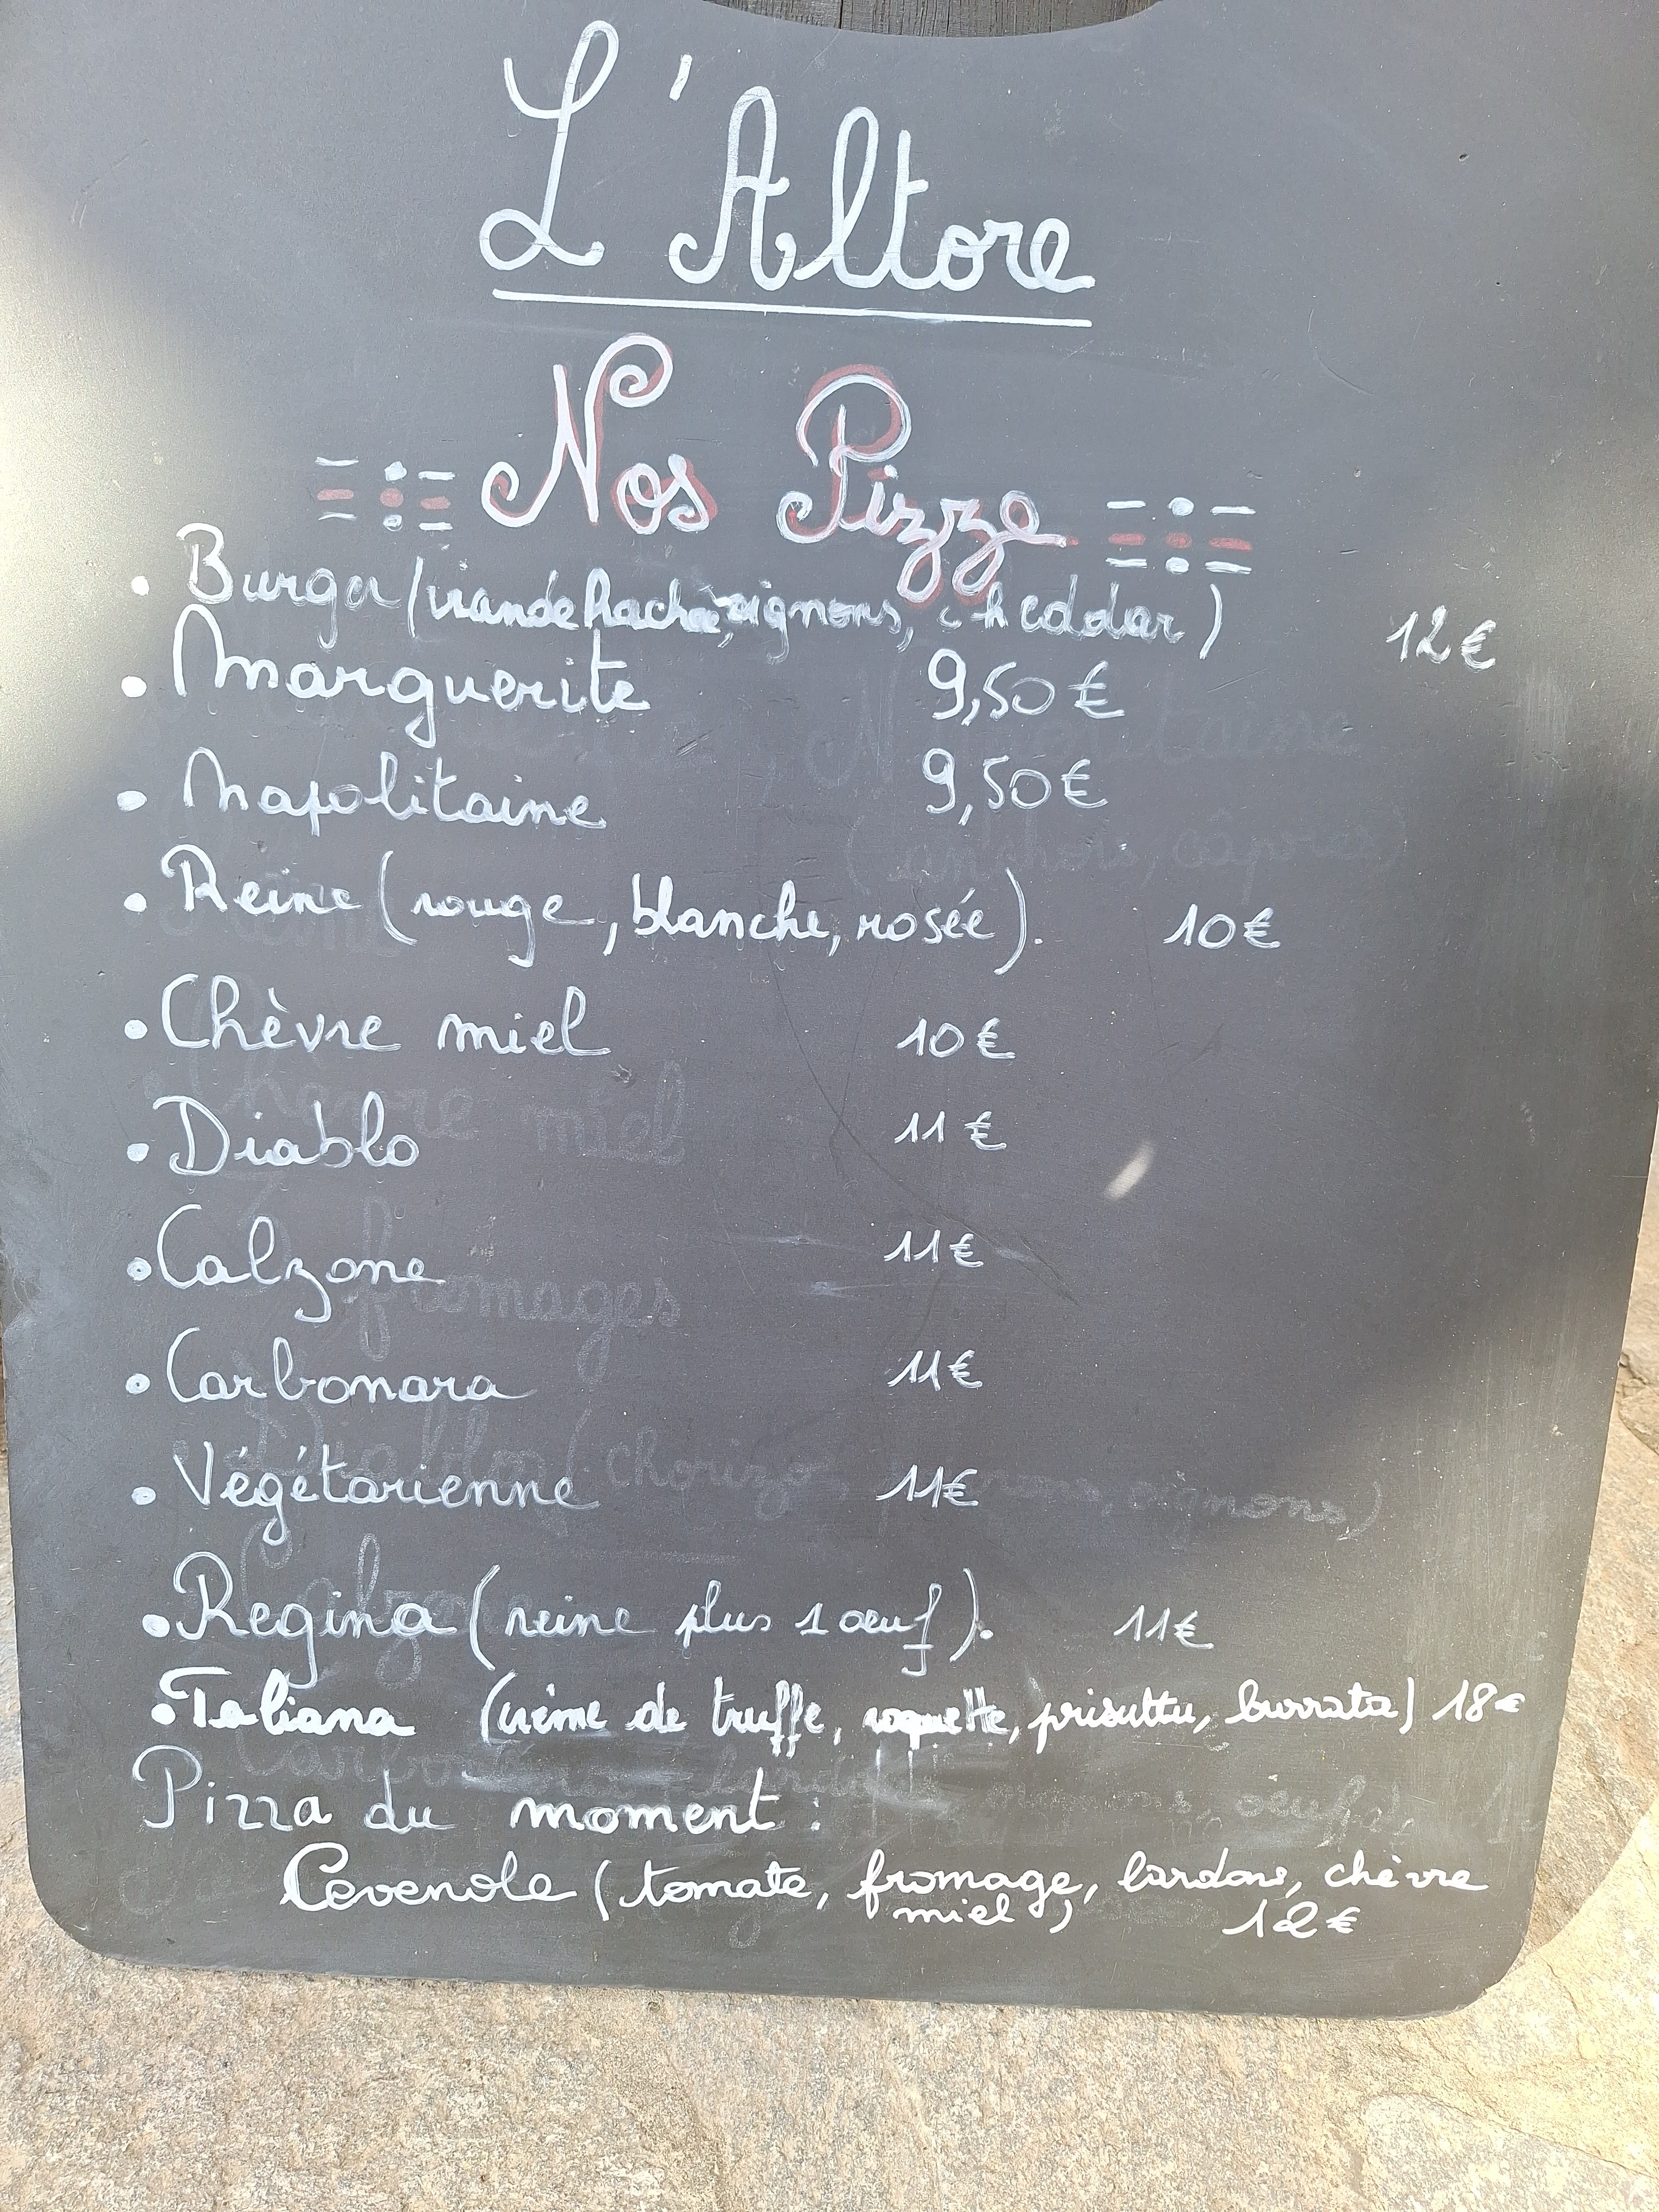 L'Altore
Nos Pizze
• Burger (viande hachée, oignons, cheddar) 12€
• Marguerite 9,50€
• Napolitaine 9,50€
• Reine (rouge, blanche, rosée). 10€
• Chèvre miel 10€
• Diablo 11€
• Calzone 11€
• Carbonara 11€
• Végétarienne 11€
• Regina (reine plus 1 oeuf). 11€
• Taliana (crème de truffe, roquette, prisuttu, burrata) 18€
Pizza du moment :
Cevenole (tomate, fromage, lardons, chèvre
miel, 12€